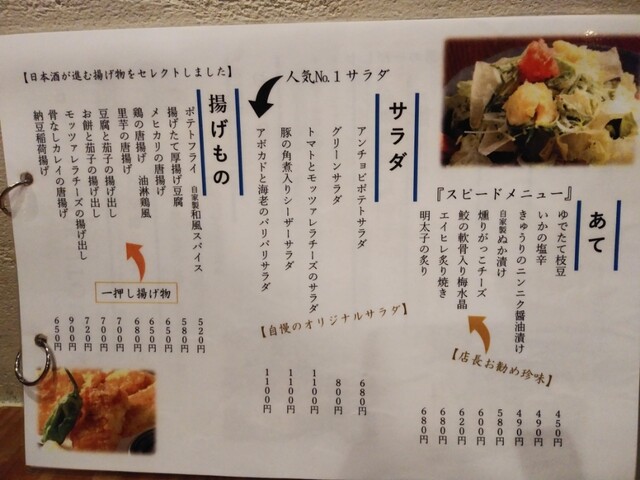 あて
『スピードメニュー』
ゆでたて枝豆 450円
いかの塩辛 490円
きゅうりのニンニク醤油漬け 490円
自家製ぬか漬け 580円
燻りがっこチーズ 600円
鮫の軟骨入り梅水晶 620円
エイヒレ炙り焼き 680円
明太子の炙り 680円
【店長お勧め珍味】
サラダ
人気No.1サラダ
アンチョビポテトサラダ 680円
グリーンサラダ 800円
トマトとモッツァレラチーズのサラダ 1100円
豚の角煮入りシーザーサラダ 1100円
アボカドと海老のパリパリサラダ 1100円
【自慢のオリジナルサラダ】
揚げもの
【日本酒が進む揚げ物をセレクトしました】
ポテトフライ 自家製和風スパイス 520円
揚げたて厚揚げ豆腐 580円
メヒカリの唐揚げ 650円
鶏の唐揚げ 油淋鶏風 680円
里芋の唐揚げ 700円
豆腐と茄子の揚げ出し 700円
お餅と茄子の揚げ出し 720円
モッツァレラチーズの揚げ出し 900円
骨なしカレイの唐揚げ 650円
納豆稲荷揚げ
一押し揚げ物